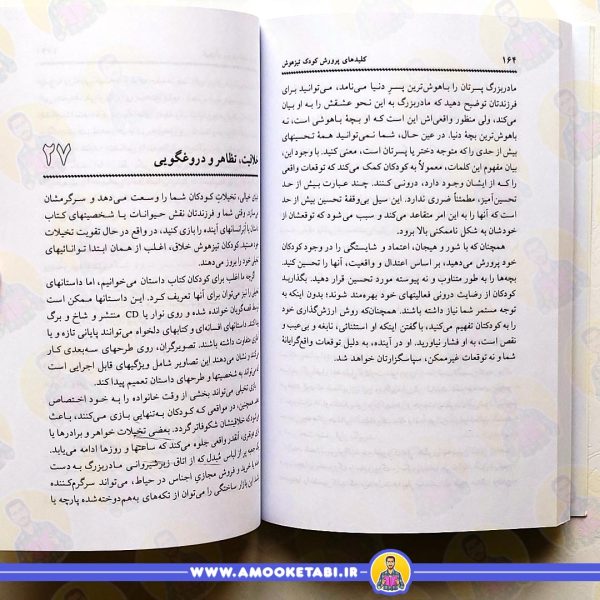 ۱۶۴ کلیدهای پرورش کودک تیزهوش
مادربزرگ پسرتان را باهوش‌ترین پسرِ دنیا می‌نامد، می‌توانید برای
فرزندتان توضیح دهید که مادربزرگ به این نحو عشقش را به او بیان
می‌کند، ولی منظور واقعی‌اش این است که او بچهٔ باهوشی است، نه
باهوش‌ترین بچهٔ دنیا. در عین حال، شما نمی‌توانید همهٔ تحسینهای
بیش از حدی را که متوجه دختر یا پسرتان است، معنی کنید. با وجود این،
بیان مفهوم این کلمات، معمولاً به کودکان کمک می‌کند که توقعات واقعی
را که از ایشان وجود دارد، درونی کنند. چند عبارت بیش از حد
تحسین‌آمیز، مطمئناً ضرری ندارد. این سیل بی‌وقفهٔ تحسین بیش از حد
است که آنها را به این امر متقاعد می‌کند و سبب می‌شود که توقعشان از
خودشان به شکل ناممکنی بالا برود.
همچنان که با شور و هیجان، اعتماد و شایستگی را در وجود کودکان
خود پرورش می‌دهید، بر اساس اعتدال و واقعیت، آنها را تحسین کنید.
بچه‌ها را به طور متناوب و نه پیوسته مورد تحسین قرار دهید. بگذارید
کودکان از رضایت درونی فعالیتهای خود بهره‌مند شوند؛ بدون اینکه به
توجه مستمر شما نیاز داشته باشند. همچنان‌که روش ارزش‌گذاری خود
را به کودکتان تفهیم می‌کنید، با گفتن اینکه او استثنائی، نابغه و بی‌عیب و
نقص است، به او فشار نیاورید. او در آینده، به دلیل توقعات واقع‌گرایانهٔ
شما و نه توقعات غیرممکن، سپاسگزارتان خواهد شد.
۲۷
خلاقیت، تظاهر و دروغگویی
خیالی، تخیلاتِ کودکان شما را وسعت می‌دهد و سرگرمشان
وقتی شما و فرزندتان نقش حیوانات یا شخصیتهای کتاب
داستان یا آدمهای آینده را بازی کنید، در واقع در حال تقویت تخیلات
هستید. کودکان تیزهوش خلاق، اغلب از همان ابتدا تواناییهای
خود را بروز می‌دهند.
گرچه ما اغلب برای کودکان کتاب داستان می‌خوانیم، اما داستانهای
را نیز می‌توان برای آنها تعریف کرد. این داستانها ممکن است
قصه‌گویان خوانده شده و روی نوار یا CD منتشر و شاخ و برگ
داستانهای افسانه‌ای و کتابهای دلخواه می‌توانند پایانی تازه و یا
متفاوت داشته باشند. تصویرگران، روی طرحهای سه‌بعدی کار
و نشان می‌دهند این تصاویر شامل ویژگیهای قابل اجرایی است
به شخصیتها و طرحهای داستان تعمیم پیدا کند.
بازی تخیلی می‌تواند بخشی از وقت خانواده را به خود اختصاص
همچنین، در مواقعی که کودکان به‌تنهایی بازی می‌کنند، باعث
که خلاقیتشان شکوفاتر گردد. بعضی تخیلات خواهر و برادرها یا
آنقدر واقعی جلوه می‌کند که ساعتها و روزها ادامه می‌یابد.
پر از لباس مُبدل که از اتاق زیرشیروانی مادربزرگ به دست
خرید و فروش مجازی اجناس در حیاط، می‌تواند سرگرم‌کننده
این بازار ساختگی را می‌توان از تکه‌های به‌هم‌دوخته‌شده پارچه یا
WWW.AMOOKETABI.IR